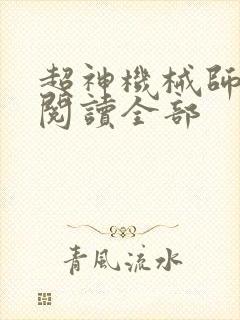 超神機械師
閱讀全部
青風流水